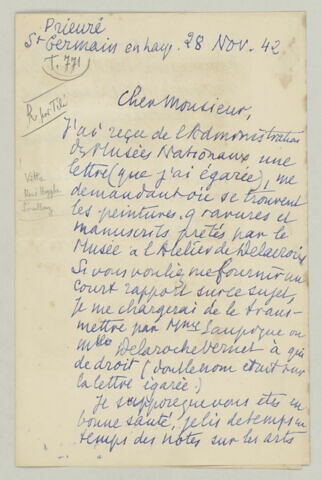 Prieuré
St Germain en Laye. 28 Nov. 42
T. 771
R par Télé
Cher Monsieur,
J'ai reçue de l'Administration
des Musées Nationaux une
lettre (que j'ai égarée), me
demandant où se trouvent
les peintures, gravures et
manuscrits prêtés par le
Musée à l'Atelier de Delacroix
Si vous vouliez me fournir un
court rapport sur ce sujet,
je me chargerai de le trans-
mettre par Mme ou
Mlle Delaroche Vernet à qui
de droit (double nom était sur
la lettre égarée.)
Je suppose que vous êtes en
bonne santé, je lis de temps en
temps des notes sur les arts